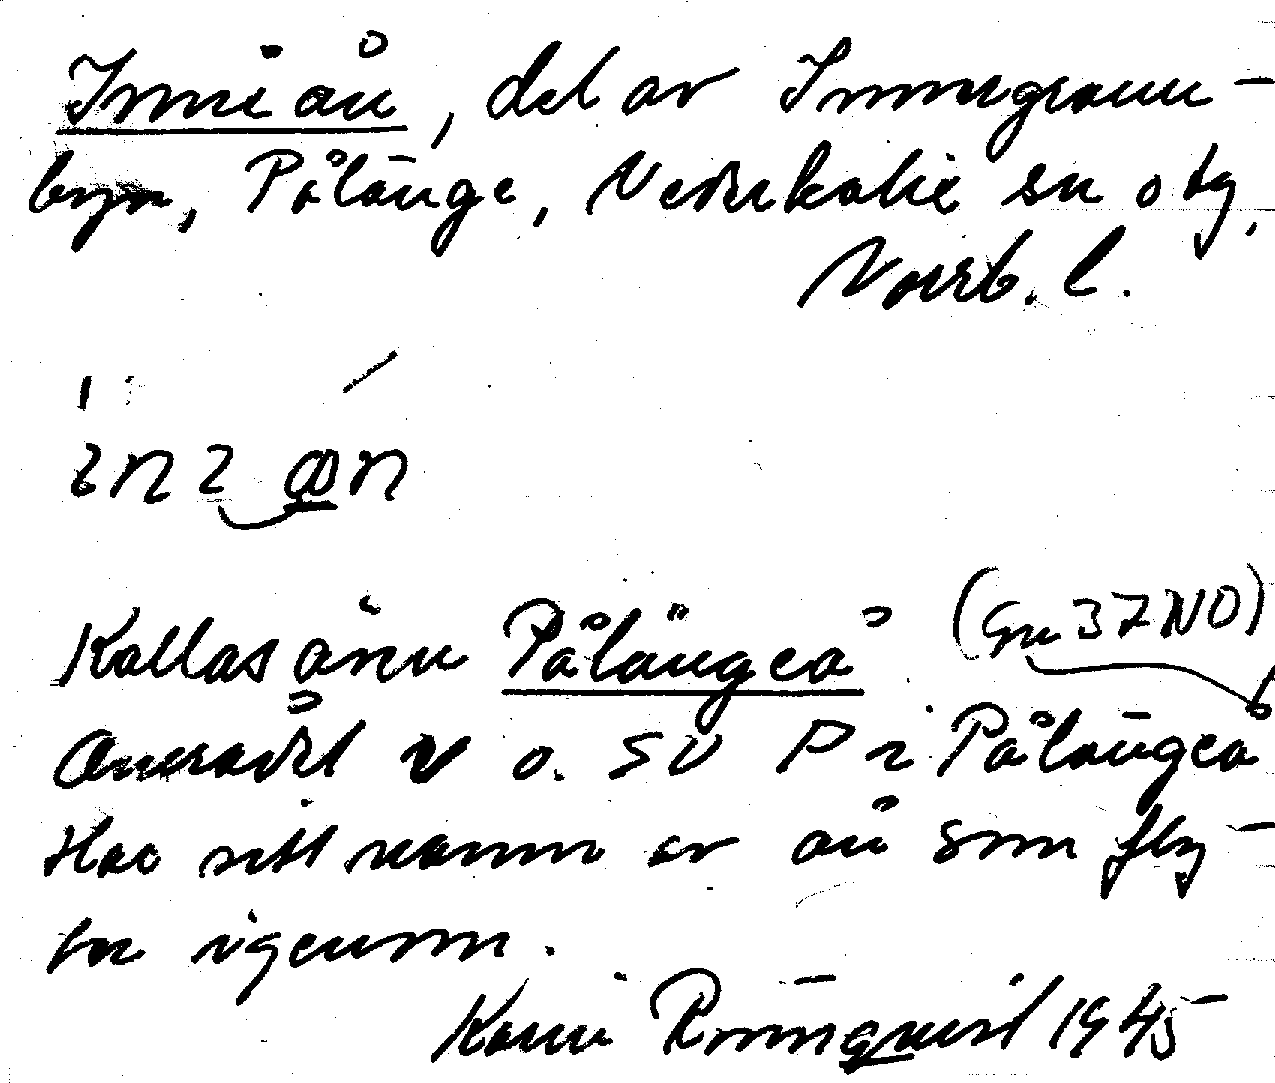 Inniån, del av Innegrann-
byn, Pålänge, Nederkalix sn o tg,
Norrb. l.
ìnɩ øn
Kallas även Pålängeå (Gn 37 NO)
Området V o. SV P i Pålängeå
Har sitt namn av ån som fly-
ter igenom.
Karin Rönnqvist 1945